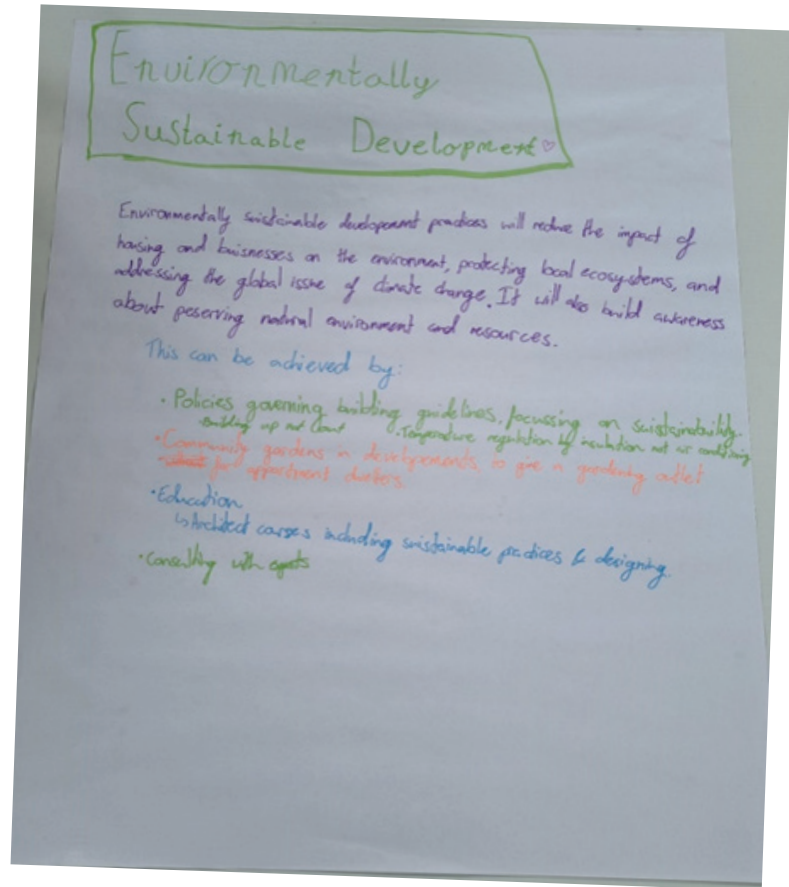 Environmentally
Sustainable Development♡
Environmentally suistainable development practices will reduce the impact of
housing and buisnesses on the environment, protecting local ecosystems, and
addressing the global issue of climate change. It will also build awareness
about peserving natural environment and resources.
This can be achieved by:
• Policies governing building guidelines, focussing on suistainability.
- Building up not out • Temperature regulation by insulation not air conditioning
• Community gardens in developements, to give a gardening outlet
for appartment dwellers.
• Education
↳ Architect courses including suistainable practices & designing.
• Consulting with experts